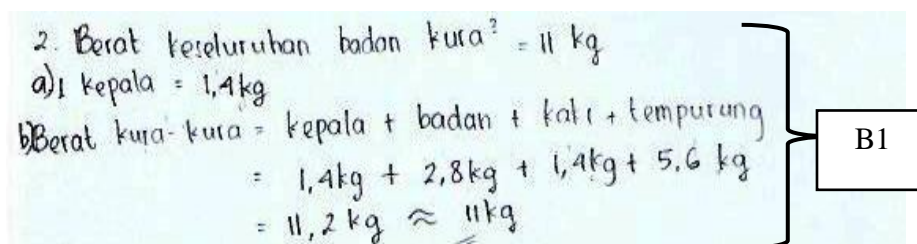 2. Berat keseluruhan badan kura² = 11 kg
a) 1 kepala = 1,4 kg
b) Berat kura-kura = kepala + badan + kaki + tempurung
= 1,4kg + 2,8kg + 1,4kg + 5.6 kg
= 11,2 kg ≈ 11kg
B1